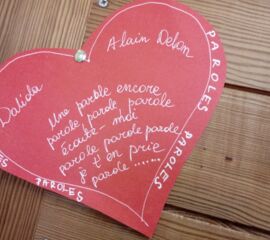 Dalida
Alain Delon
Une parole encore
parole parole parole
écoute-moi
parole parole parole
je t'en prie
parole ......
PAROLES
PAROLES
PAROLES